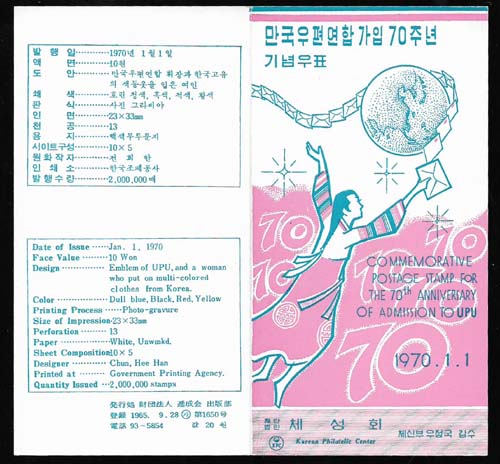 발행일 1970년 1월 1일
액면 10원
도안 만국우편연합 휘장과 한국고유
의 색동옷을 입은 여인
채색 흐린 청색, 흑색, 적색, 황색
판식 사진 그라비아
인면 23×33mm
천공 13
용지 백색무투문지
시이트구성 10×5
원화작자 전희한
인쇄소 한국조폐공사
발행수량 2,000,000매
Date of Issue Jan. 1, 1970
Face Value 10 Won
Design Emblem of UPU, and a woman
who put on multi-colored
clothes from Korea.
Color Dull blue, Black, Red, Yellow
Printing Process Photo-gravure
Size of Impression 23×33mm
Perforation 13
Paper White, Unwmkd.
Sheet Composition 10×5
Designer Chun, Hee Han
Printed at Government Printing Agency.
Quantity Issued 2,000,000 stamps
発行処 財団法人 遞成会 出版部
登録 1965. 9. 28 第1650号
電話 93-5854 값 20원
만국우편연합 가입 70주년
기념우표
70
70
70
70
70
COMMEMORATIVE
POSTAGE STAMP FOR
THE 70th ANNIVERSARY
OF ADMISSION TO UPU
1970.1.1
재단
법인 체성회
Korean Philatelic Center
체신부 우정국 감수